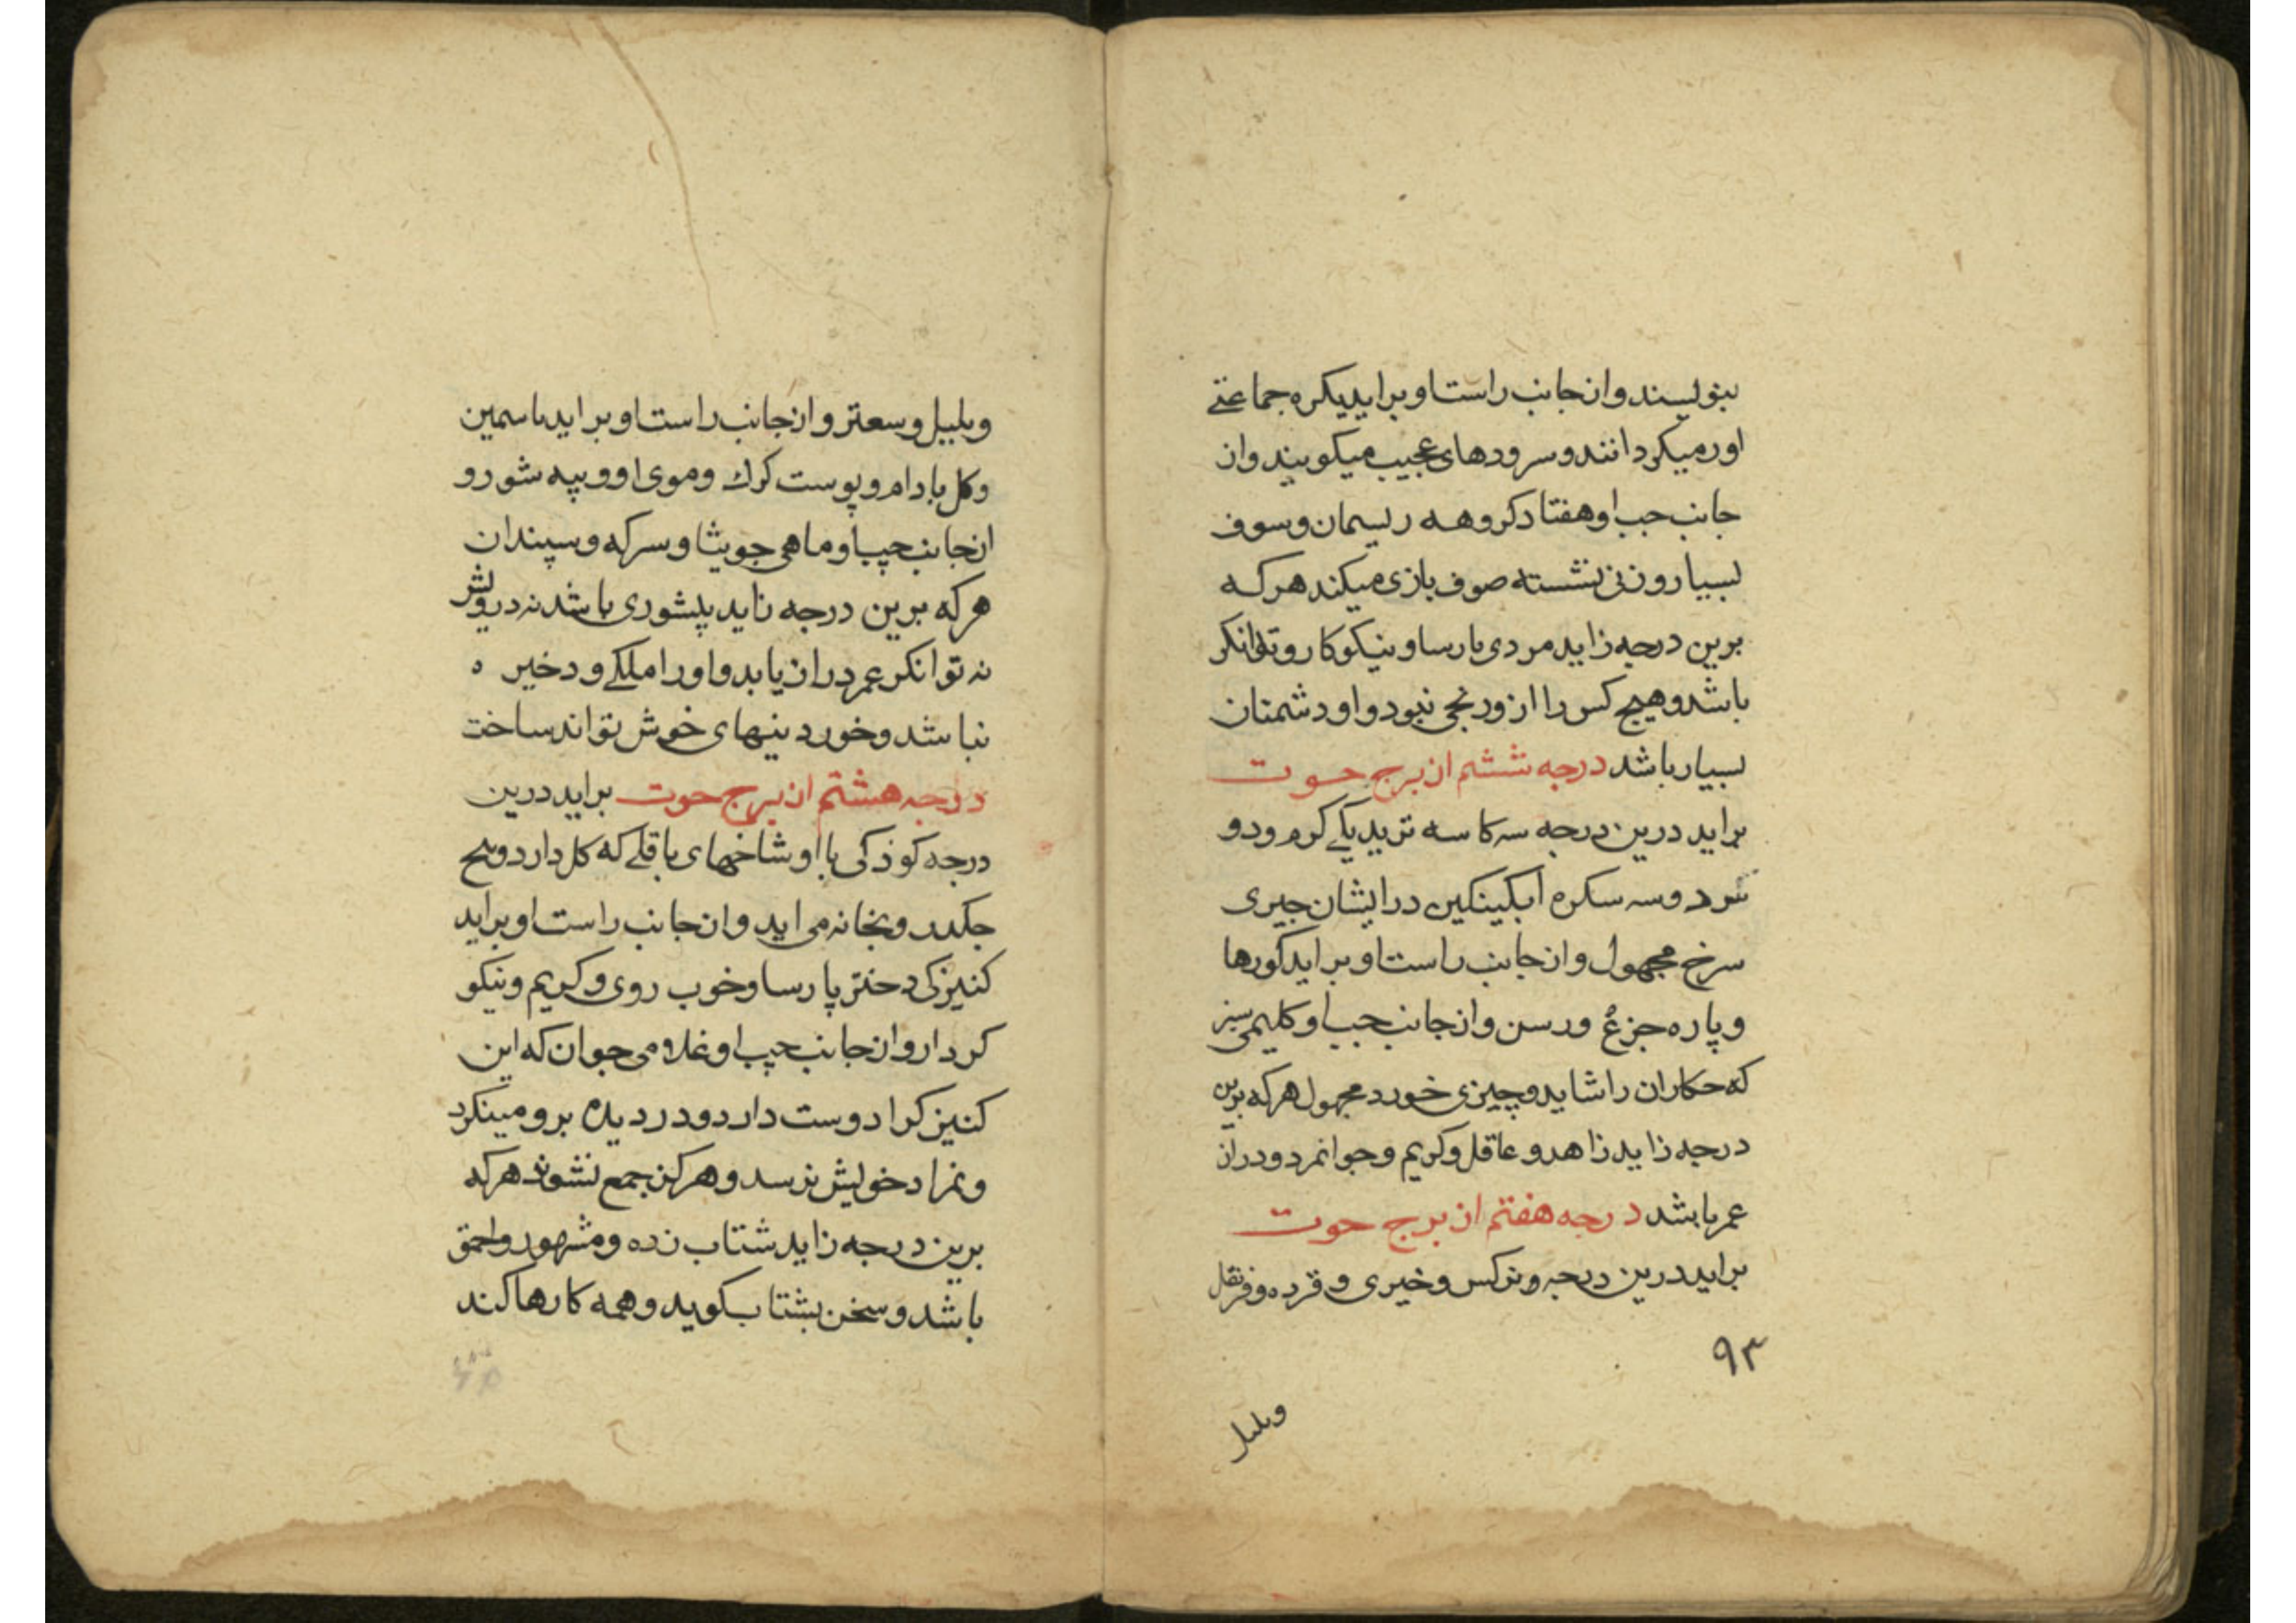 بنویسند وان جانب راست او براید یکره جماعتی
اور میکردانند و سرودهای عجیب میکویند وان
جانب جب او هفتاد کروهه ریسمان و سوف
بسیار و زنی نشسته صوف بازی میکند هر که
برین درجه زاید مردی پارسا و نیکوکار و توانکر
باشد و هیچ کس را ازو رنجی نبود و او دشمنان
بسیار باشد درجه ششم از برج حوت
براید درین درجه سه کاسه ترید یکی کرم و دو
سرد و سه سکره ابکینکین در ایشان جیزی
سرخ مجهول وان جانب راست او براید کورها
و پاره جزع و رسن وان جانب جب او کلیمی سبز
که حکاران را شاید و چیزی خورد مجهول هر که برین
درجه زاید زاهد و عاقل و کریم و جوانمرد و دراز
عمر باشد درجه هفتم از برج حوت
براید درین درجه و نرکس و خیری و قرده و قرنفل
۹۳
وبلبل
وبلبل و سعتر وان جانب راست او براید یاسمین
و کل بادام و پوست کرک و موی او و پیه شور و
از جانب چپ او ماهی جویثا و سرکه و سپندان
هر که برین درجه زاید پلشوری باشد نه درویش
نه توانکر عمر دراز یابد و او را ملکی و دخیره
نباشد و خوردنیهای خوش تواند ساخت
درجه هشتم از برج حوت براید درین
درجه کوذکی با او شاخهای باقلی که کل دارد و
و بخانه می اید وان جانب راست او براید
کنیزکی دختر پارسا و خوب روی و کریم و نیکو
کردار وان جانب چپ او غلامی جوان که این
کنیزک را دوست دارد و دزدیده برو مینکرد
و بمراد خویش نرسد و هرکز جمع نشوند هر که
برین درجه زاید شتاب زده و مشهور و احمق
باشد و سخن بشتاب کوید و همه کارها کند